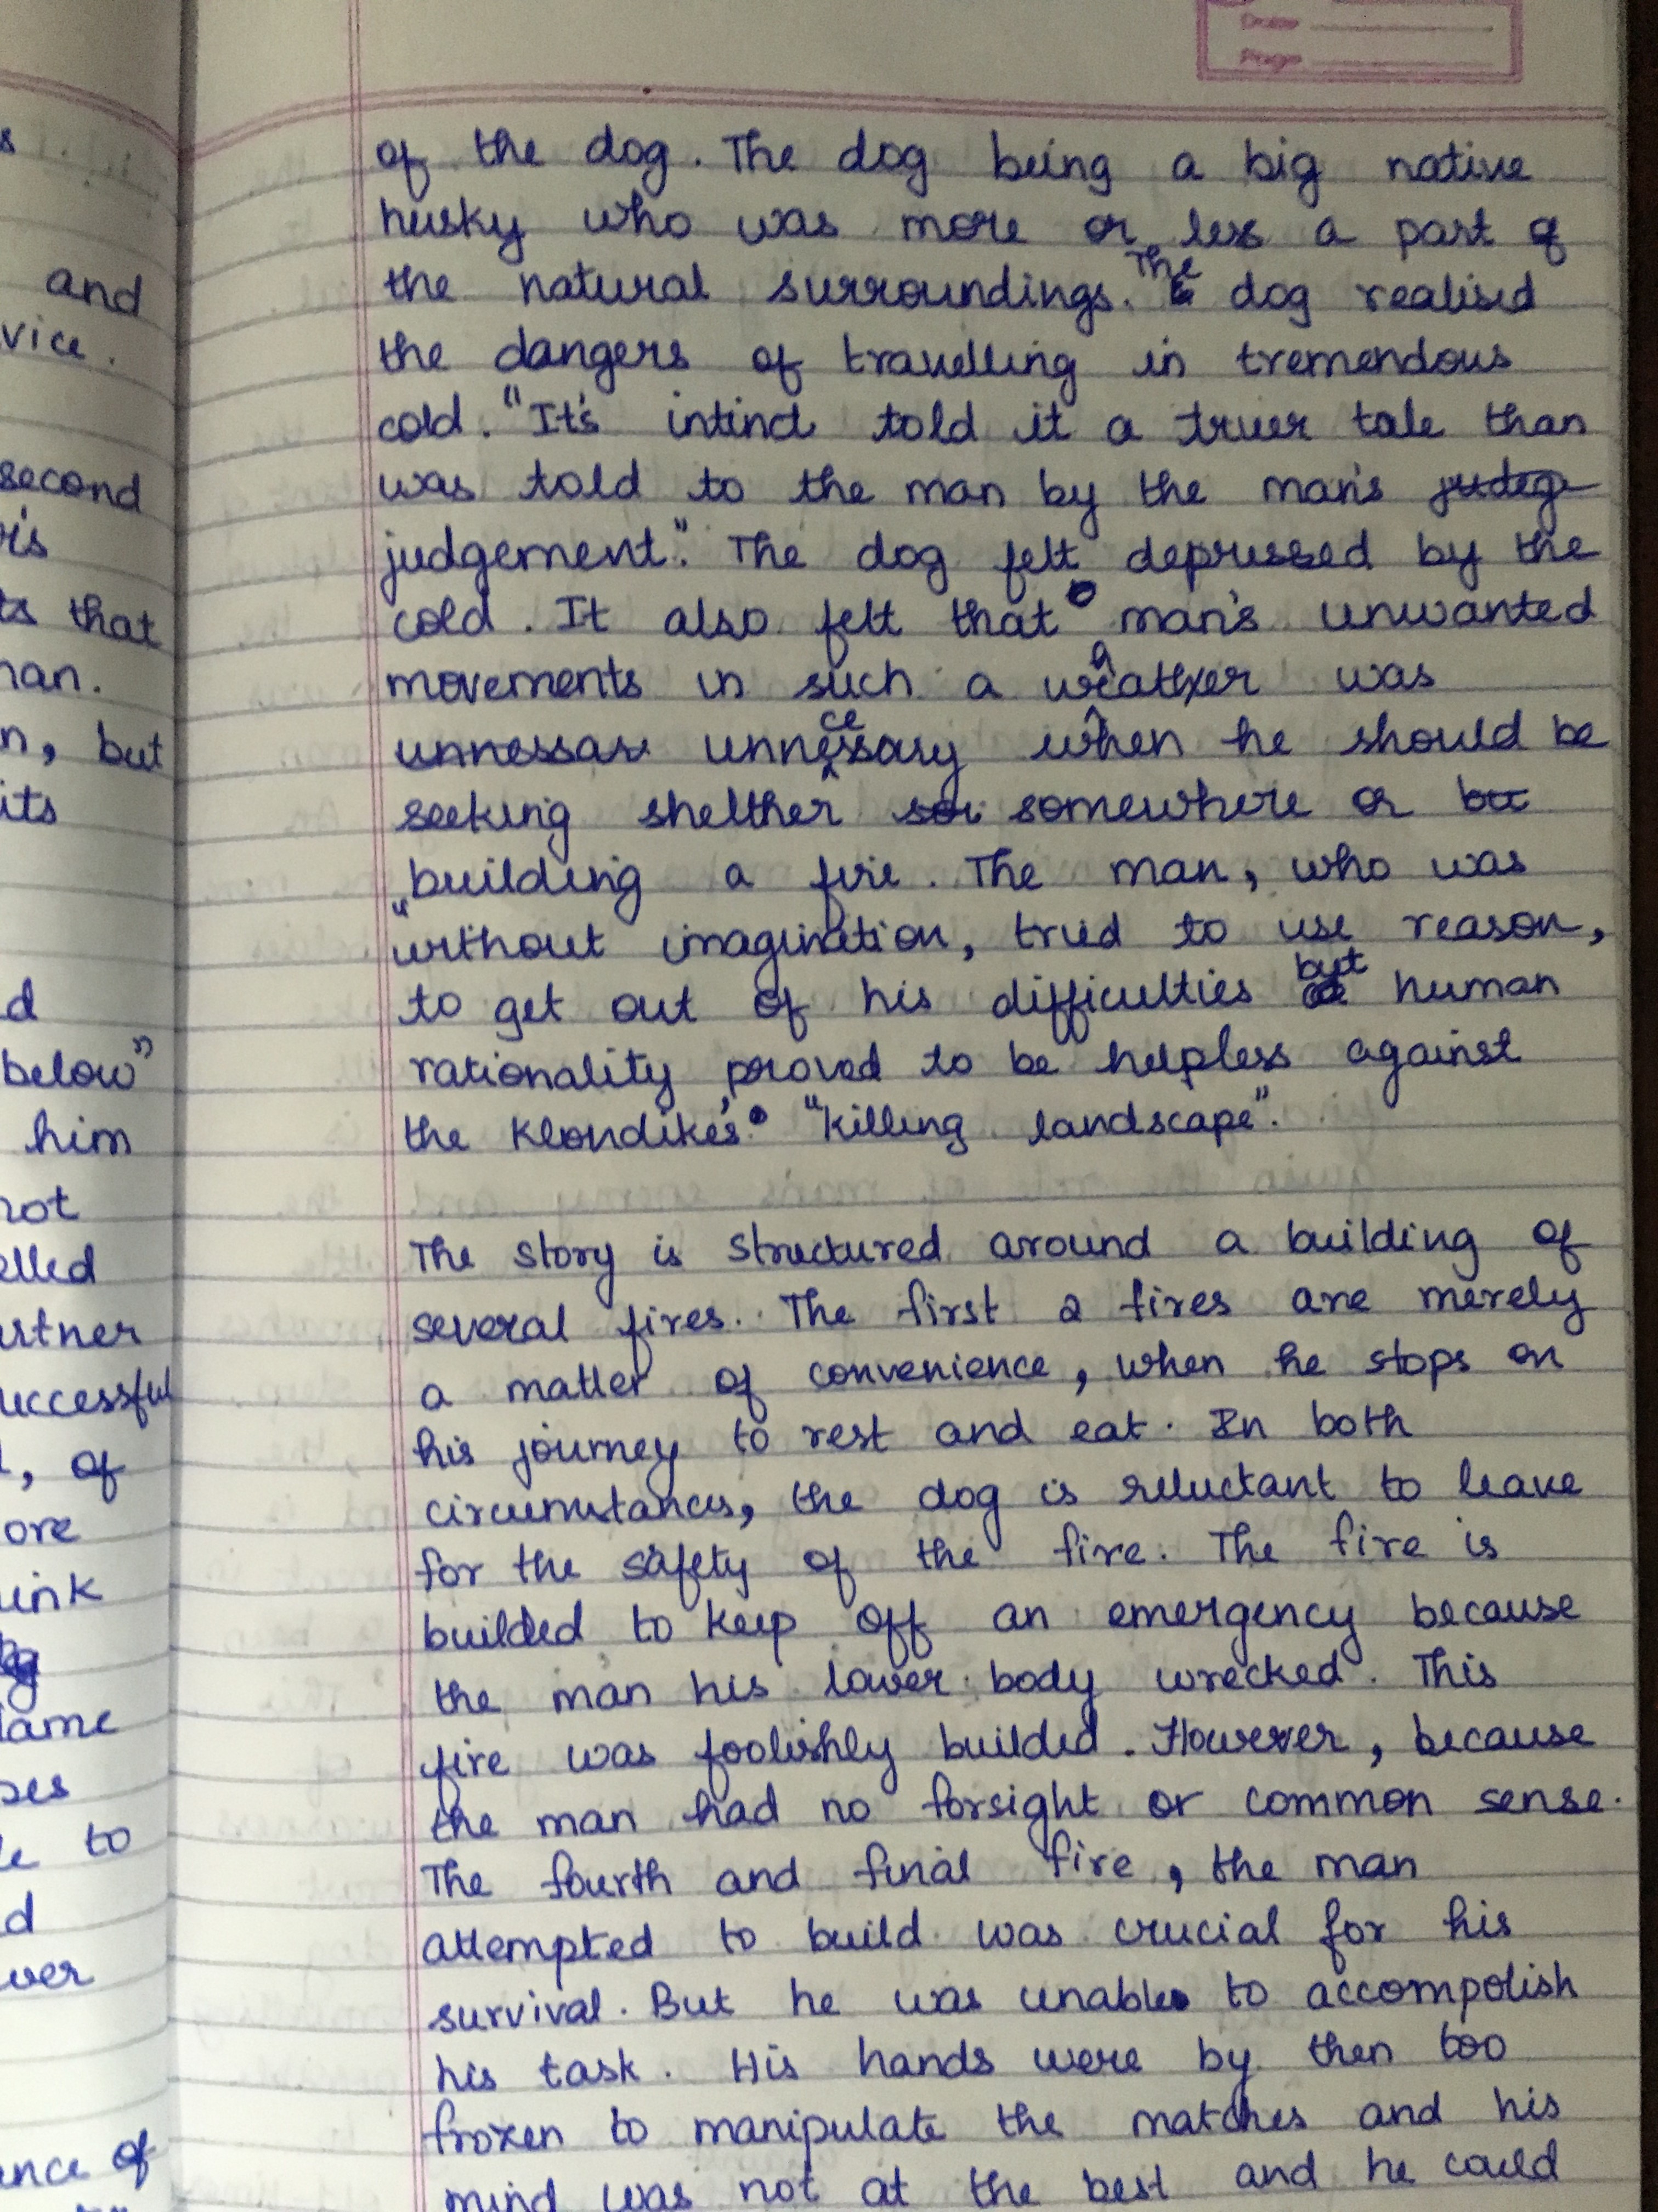 Date
Page
of the dog. The dog being a big native
husky who was more or less a part of
the natural surroundings. The dog realised
the dangers of travelling in tremendous
cold. "It's intinct told it a truer tale than
was told to the man by the man's judeg
judgement". The dog felt depressed by the
cold. It also felt that man's unwanted
movements in such a weather was
unnessar unnecessary when he should be
seeking shelther somewhere or
building a fire. The man, who was
"without imagination, tried to use reason,
to get out of his difficulties but human
rationality proved to be helpless against
the Klondike's "killing landscape".
The story is structured around a building of
several fires. The first 2 fires are merely
a matter of convenience, when he stops on
his journey to rest and eat. In both
circumstances, the dog is reluctant to leave
for the safety of the fire. The fire is
builded to keep off an emergency because
the man his lower body wrecked. This
fire was foolishly builded. However, because
the man had no forsight or common sense.
The fourth and final fire, the man
attempted to build was crucial for his
survival. But he was unable to accompolish
his task. His hands were by then too
frozen to manipulate the matches and his
mind was not at the best and he could
and
vice.
second
that
but
its
below"
him
not
successful
, of
to
of